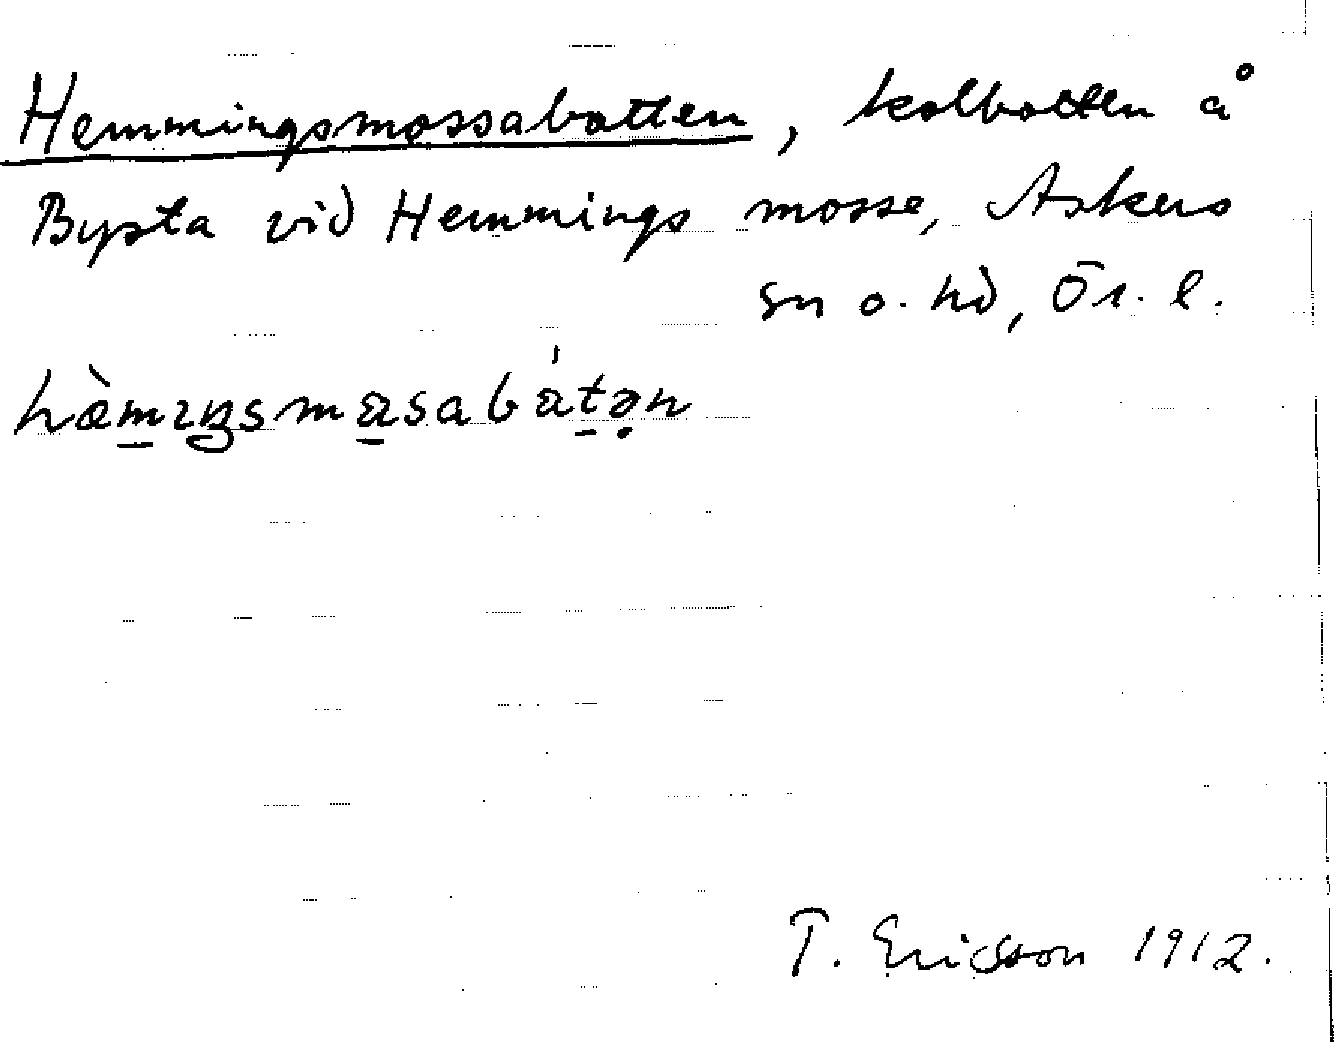 Hemmingsmossabotten, kolbotten å
Bysta vid Hemmings mosse, Askers
sn o. hd, Ör. l.
T. Ericsson 1912.